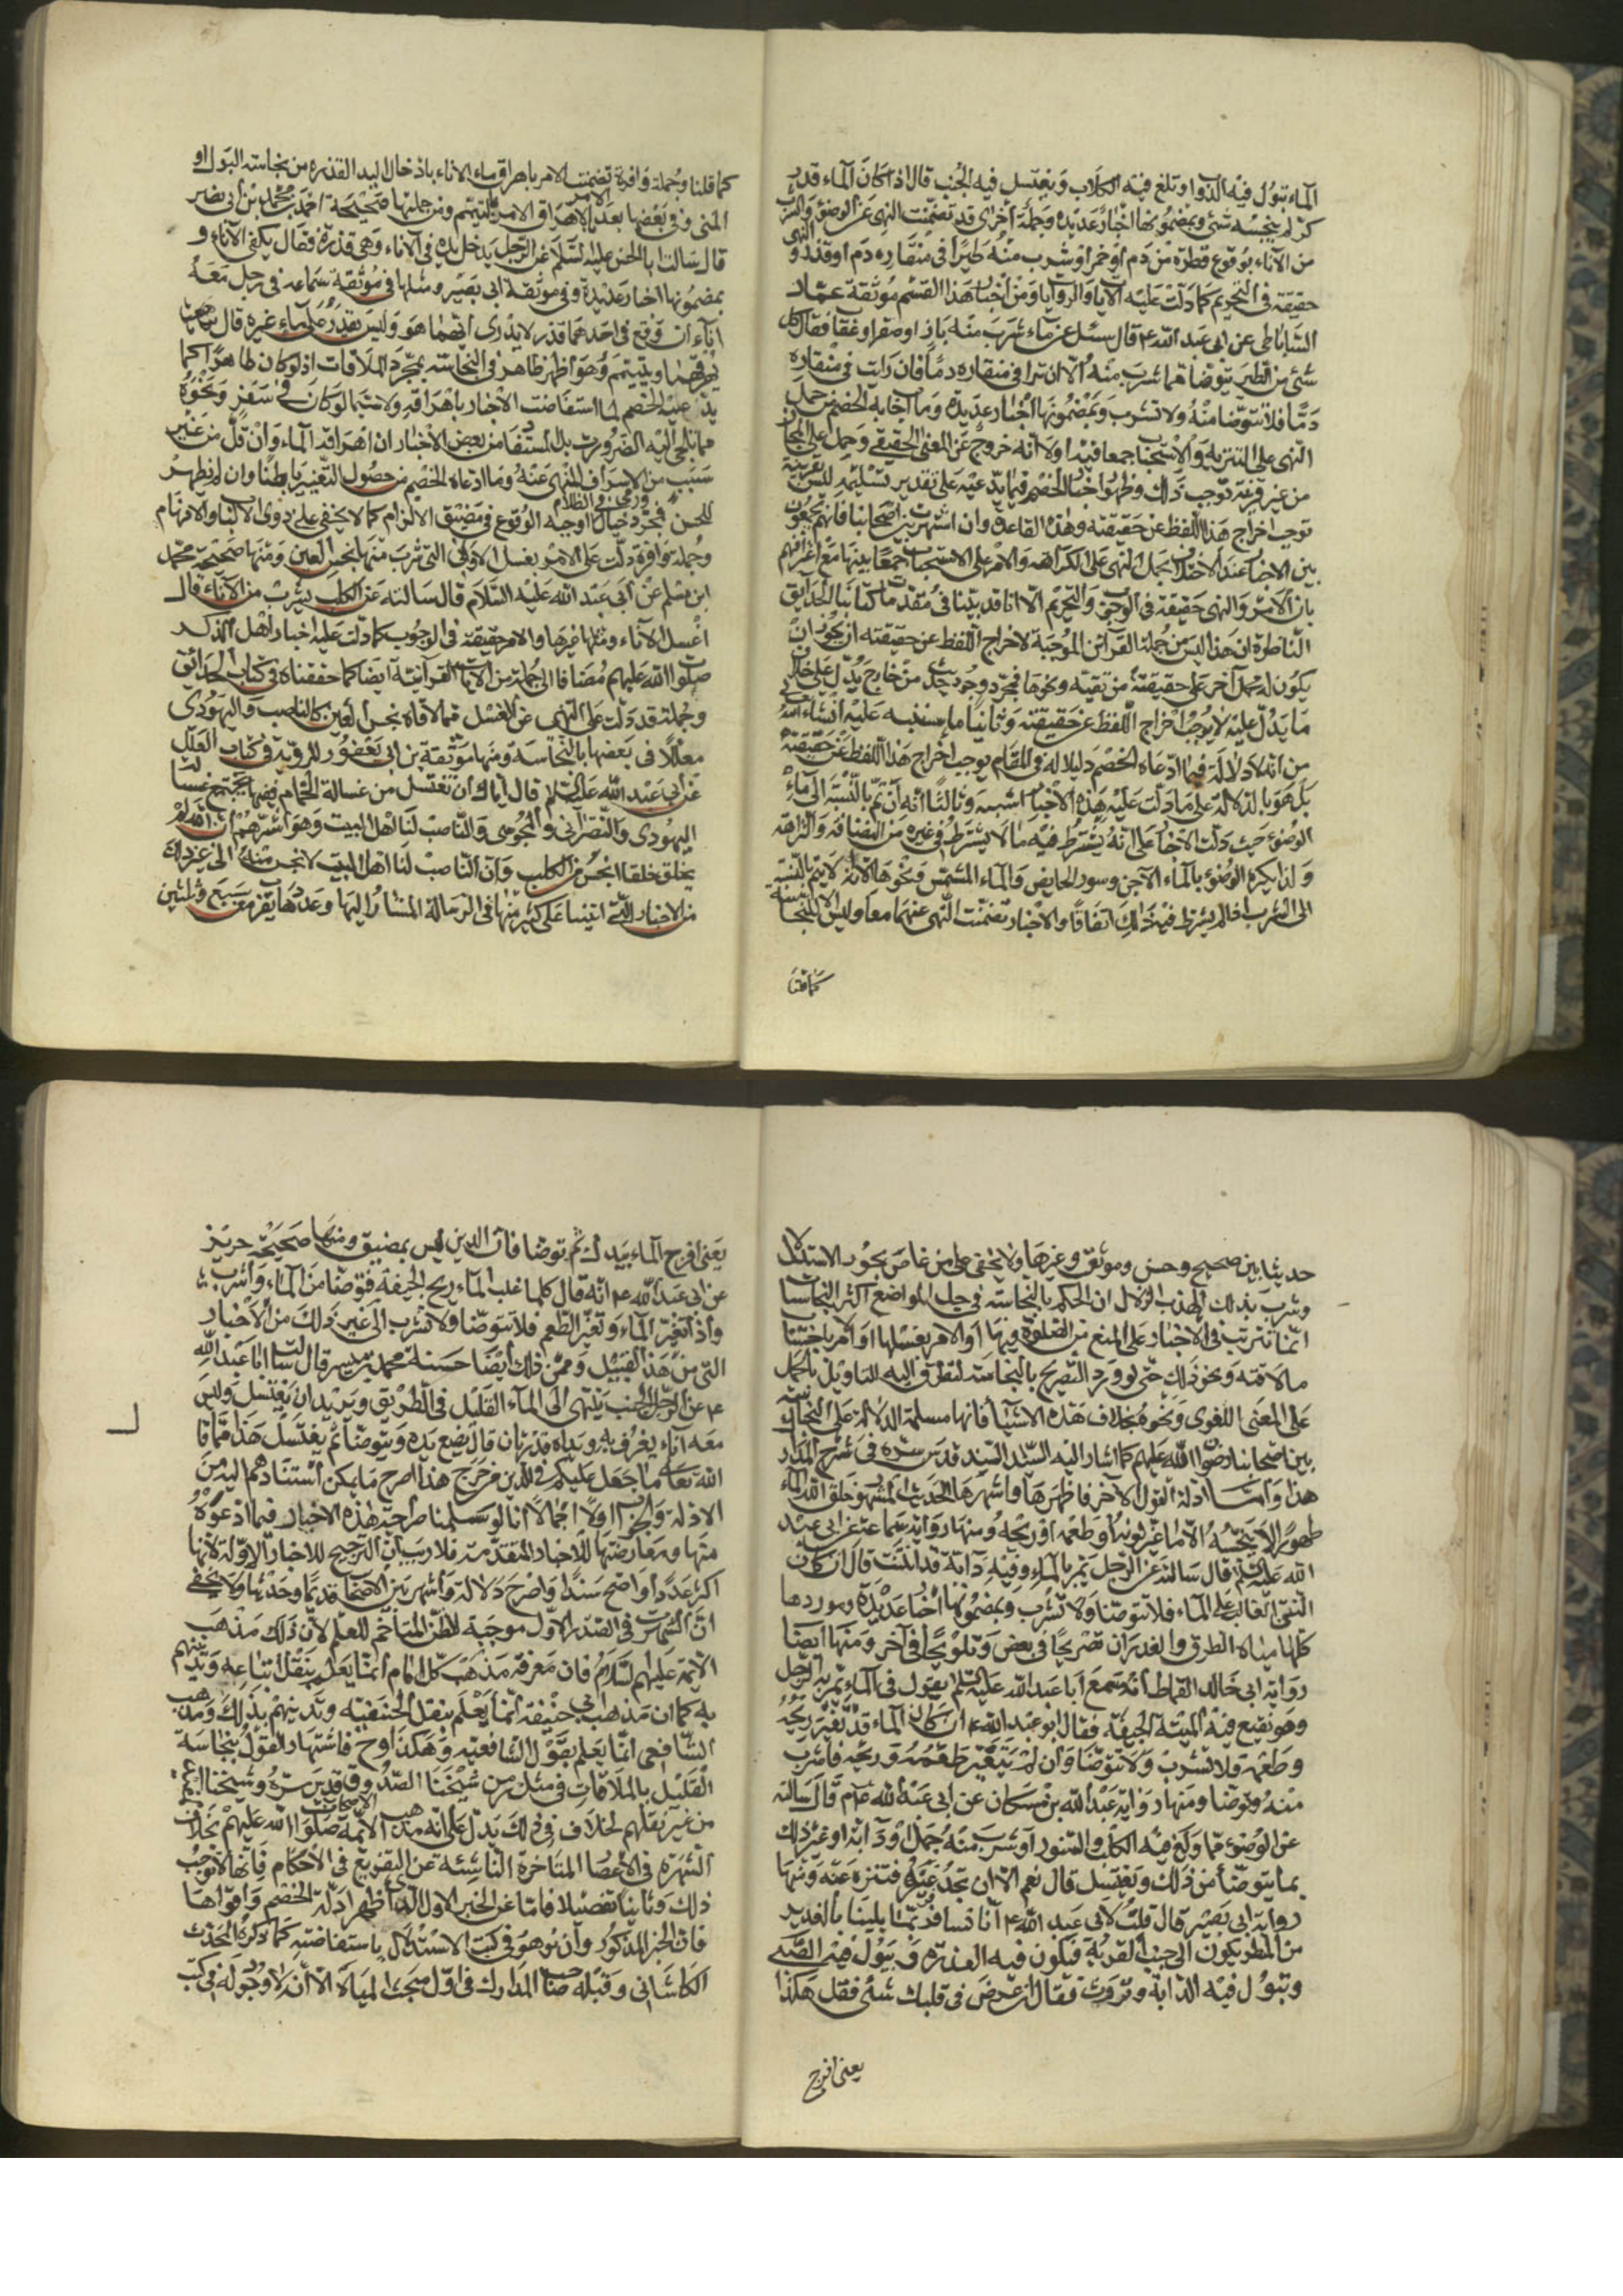 الماء تبول فيه الدواب وتلغ فيه الكلاب ويغتسل فيه الجنب قال اذا كان الماء قدر
كر لم ينجسه شئ وبمضمونها اخبار عديدة وجملة أخرى قد تضمنت النهى عن الوضوء والشرب
من الآناء بوقوع قطرة من دم أو خمر او شرب منه طير في منقاره دم أو قذر و النهى
حقيقة في التحريم كما دلت عليه الآيات والروايات ومن أخبار هذا القسم موثقة عمار
الساباطى عن ابى عبد الله ع قال سئل عن ماء شرب منه باز او صقر او عقاب فقال كل
شئ من الطير يتوضأ مما شرب منه الا ان ترا في منقاره دمًا فان رايت في منقاره
دمًا فلا تتوضأ منه ولا تشرب وبمضمونها اخبار عديدة وما اجاب به الخصم من حمل
النهى على التنزيه والاستحباب جمعا فيه اولا انه خروج عن المعنى الحقيقي وحمل على المجاز
من غير قرينة توجب ذلك وظهور اخبار الخصم فيما يدعيه على تقدير تسليمه ليس بقرينة
توجب اخراج هذا اللفظ عن حقيقته وهذه القاعدة وان اشتهرت بين اصحابنا فانهم يجمعون
بين الاخبار عند الاختلاف بحمل النهى على الكراهة والامر على الاستحباب جمعًا بينها مع اعترافهم
بان الأمر والنهى حقيقة في الوجوب والتحريم الا انا قد بينا في مقدمات كتابنا الحدايق
الناظرة ان هذا ليس من جملة القرائن الموجبة لاخراج اللفظ عن حقيقته اذ يجوز ان
يكون له محمل آخر على حقيقته من تقية ونحوها فمجرد وجود حديث من خارج يدل على خلاف
ما يدل عليه لا يوجب اخراج اللفظ عن حقيقته وثانيًا ما سننبه عليه انشاء الله
من انه لا دلالة فيما ادعاه الخصم دليلا له في المقام يوجب اخراج هذا اللفظ عن حقيقته
بل هو بالدلالة على ما دلت عليه هذه الأخبار اشبه وثالثًا انه ان تم بالنسبة الى ماء
الوضوء حيث دلت الاخبار على انه يشترط فيه ما لا يشترط في غيره من النضافة والنزاهة
ولذا يكره الوضوء بالماء الآجن وسور الحايض والماء المشمس ونحوها الا انه لا يتم بالنسبة
الى الشرب اذ لم يشترط فيه ذلك اتفاقًا والاخبار تضمنت النهى عنهما معا وليس الا للنجاسة
كما قلنا
كما قلنا وجملة وافرة تضمنت الامر باهراق ماء الاناء باذخال اليد القذرة من نجاسة البول او
المنى وفي بعضها بعد الامر بالاهراق الامر بالتيمم ومن جملتها صحيحة احمد بن محمد بن أبى نصر
قال سالت ابا الحسن عليه السلام عن الرجل يدخل يده في الآناء وهى قذرة فقال يكفئ الآناء و
بمضمونها اخبار عديدة وفي موثقة ابى بصير ومثلها في موثقة سماعه في رجل معه
اناءان وقع في احدهما قذر لا يدرى ايهما هو وليس يقدر على ماء غيره قال
يهرقهما ويتيمم وهو اظهر ظاهر في النجاسة بمجرد الملاقات اذ لو كان طاهرًا كما
يدعيه الخصم لما استفاضت الأخبار باهراقه ولا سيما لو كان في سفر ونحوه
مما تلجئ اليه الضرورة بل المستفاد من بعض الأخبار ان اهراقه الماء وان قل من غير
سبب من الاسراف المنهى عنه وما ادعاه الخصم من حصول التغيير باطنًا وان لم يظهر
للحس فمجرد خيال ورمى في الظلام اوجبه الوقوع في مضيق الالزام كما لا يخفى على ذوى الالباب والافهام
وجملة وافرة دلت على الامر بغسل الاوانى التى شرب منها نجس العين ومنها صحيحة محمد
ابن مسلم عن أبى عبد الله عليه السلام قال سالته عن الكلب يشرب من الآناء قال
اغسل الاناء ومثلها غيرها والامر حقيقة في الوجوب كما دلت عليه اخبار أهل الذكر
صلوات الله عليهم مضافا الى جملة من الايات القرآنية أيضا كما حققناه في كتاب الحدائق
وجملة قد دلت على النهى عن الغسل مما لاقاه نجس العين كالناصب واليهودى
معللًا في بعضها بالنجاسة ومنها موثقة بن ابى يعفور المروية في كتاب العلل
عن أبى عبد الله عليه السلام قال اياك ان تغتسل من غسالة الحمام ففيها تجتمع غسالة
اليهودى والنصرانى والمجوسى والناصب لنا اهل البيت وهو اشرهم ان الله لم
يخلق خلقا انجس من الكلب وان الناصب لنا اهل البيت لانجس منه الى غير ذلك
من الاخبار التى اتينا على كثير منها في الرسالة المشار اليها وعددها يقرب من سبع وثلثين
حديثا بين صحيح وحسن وموثق وغيرها ولا يخفى على من غاص بحور الاستدلال
وشرب بذلك العذب الزلال ان الحكم بالنجاسة في جل المواضع اكثر النجاسات
انما تترتب في الاخبار على المنع من الصلوة فيها او الامر بغسلها او الامر باجتناب
ما لاقته ونحو ذلك حتى لو ورد التصريح بالنجاسة لتطرق اليه التاويل بالحمل
على المعنى اللغوى ونحوه بخلاف هذه الاشيا فانها مسلمة الدلالة على النجاسة
بين اصحابنا رضوان الله عليهم كما اشار اليه السيد السند قدس سره في شرح المدارك
هذا واما ادلة القول الآخر فاظهرها واشهرها الحديث المشهور خلق الله الماء
طهورًا لا ينجسه الا ما غير لونه أو طعمه او ريحه ومنها رواية سماعة عن ابى عبد
الله عليه السلم قال سالته عن الرجل يمر بالماء وفيه دابة قد انتنت قال ان كان
النتن الغالب على الماء فلا تتوضأ ولا تشرب وبمضمونها أخبار عديدة وموردها
كلها مياه الطرق والغدران تصريحًا في بعض وتلويحًا في آخر ومنها أيضا
رواية ابى خالد القماط أنه سمع أبا عبد الله عليه السلم يقول في الماء يمر به الرجل
وهو نقيع فيه الميتة الجيفة فقال ابو عبد الله ع ان كان الماء قد تغير ريحه
وطعمه فلا تشرب ولا تتوضأ وان لم يتغير طعمه وريحه فاشرب
منه وتوضأ ومنها رواية عبد الله بن مسكان عن ابى عبد الله ع قال سالته
عن الوضوء مما ولغ فيه الكلب والسنور او شرب منه جمل او دآبة او غير ذلك
بما يتوضأ من ذلك ويغتسل قال نعم الا ان تجد غيره فتنزه عنه ومنها
رواية ابى بصير قال قلت لابى عبد الله ع انا نسافر فربما بلينا بالغدير
من المطر يكون الى جنب القرية فيكون فيه العذرة ويبول فيه الصبى
وتبول فيه الدابة وتروث فقال ان عرض في قلبك شئ فقل هكذا
يعنى افرج
يعنى افرج الماء بيدك ثم توضأ فان الدين ليس بمضيق ومنها صحيحة حريز
عن ابى عبد الله ع انه قال كلما غلب الماء ريح الجيفة فتوضأ من الماء واشرب
واذا تغير الماء وتغير الطعم فلا تتوضأ ولا تشرب الى غير ذلك من الأخبار
التى من هذا القبيل ومن ذلك أيضا حسنة محمد بن ميسر قال سالت ابا عبد الله
ع عن الرجل الجنب ينتهى الى الماء القليل في الطريق ويريد ان يغتسل وليس
معه اناء يغرف به ويداه قذرتان قال يضع يده ويتوضأ ثم يغتسل هذا مما قال
الله تعالى ما جعل عليكم في الدين من حرج هذا اصرح ما يمكن استنادهم اليه من
الادلة والجواب اولًا اجمالا انا لو سلمنا صراحة هذه الاخبار فيما ادعوه
منها ومعارضتها للأخبار المتقدمة فلا ريب ان الترجيح للاخبار الاولة لانها
اكثر عددًا واوضح سندًا واصرح دلالة واشهر بين الاصحاب قديمًا وحديثًا ولا يخفى
ان الشهرة في الصدر الاول موجبة للظن المتاخم للعلم لان ذلك مذهب
الأئمة عليهم السلام فان معرفة مذهب كل امام انما يعلم بنقل اتباعه وتدينهم
به كما ان مذهب ابى حنيفة انما يعلم بنقل الحنفية وتدينهم بذلك ومذهب
الشافعى انما يعلم بقول الشافعية وهكذا وح فاشتهار القول بنجاسة
القليل بالملاقات في مثل زمن شيخنا الصدوق قدس سره وشيخنا
من غير نقلهم لخلاف في ذلك يدل على انه مذهب الأئمة صلوات الله عليهم بخلاف
الشهرة في الأعصار المتاخرة الناشئة عن التفريع في الأحكام فانها لا توجب
ذلك وثانيًا تفصيلا فاما عن الخبر الاول الذى اظهر ادلة الخصم واقواها
فان الخبر المذكور وان نوهو في كتب الاستدلال باستفاضته كما ذكره المحدث
الكاشانى وقبله صاحب المدارك في اول مبحث المياه الا انه لا وجود له في كتب